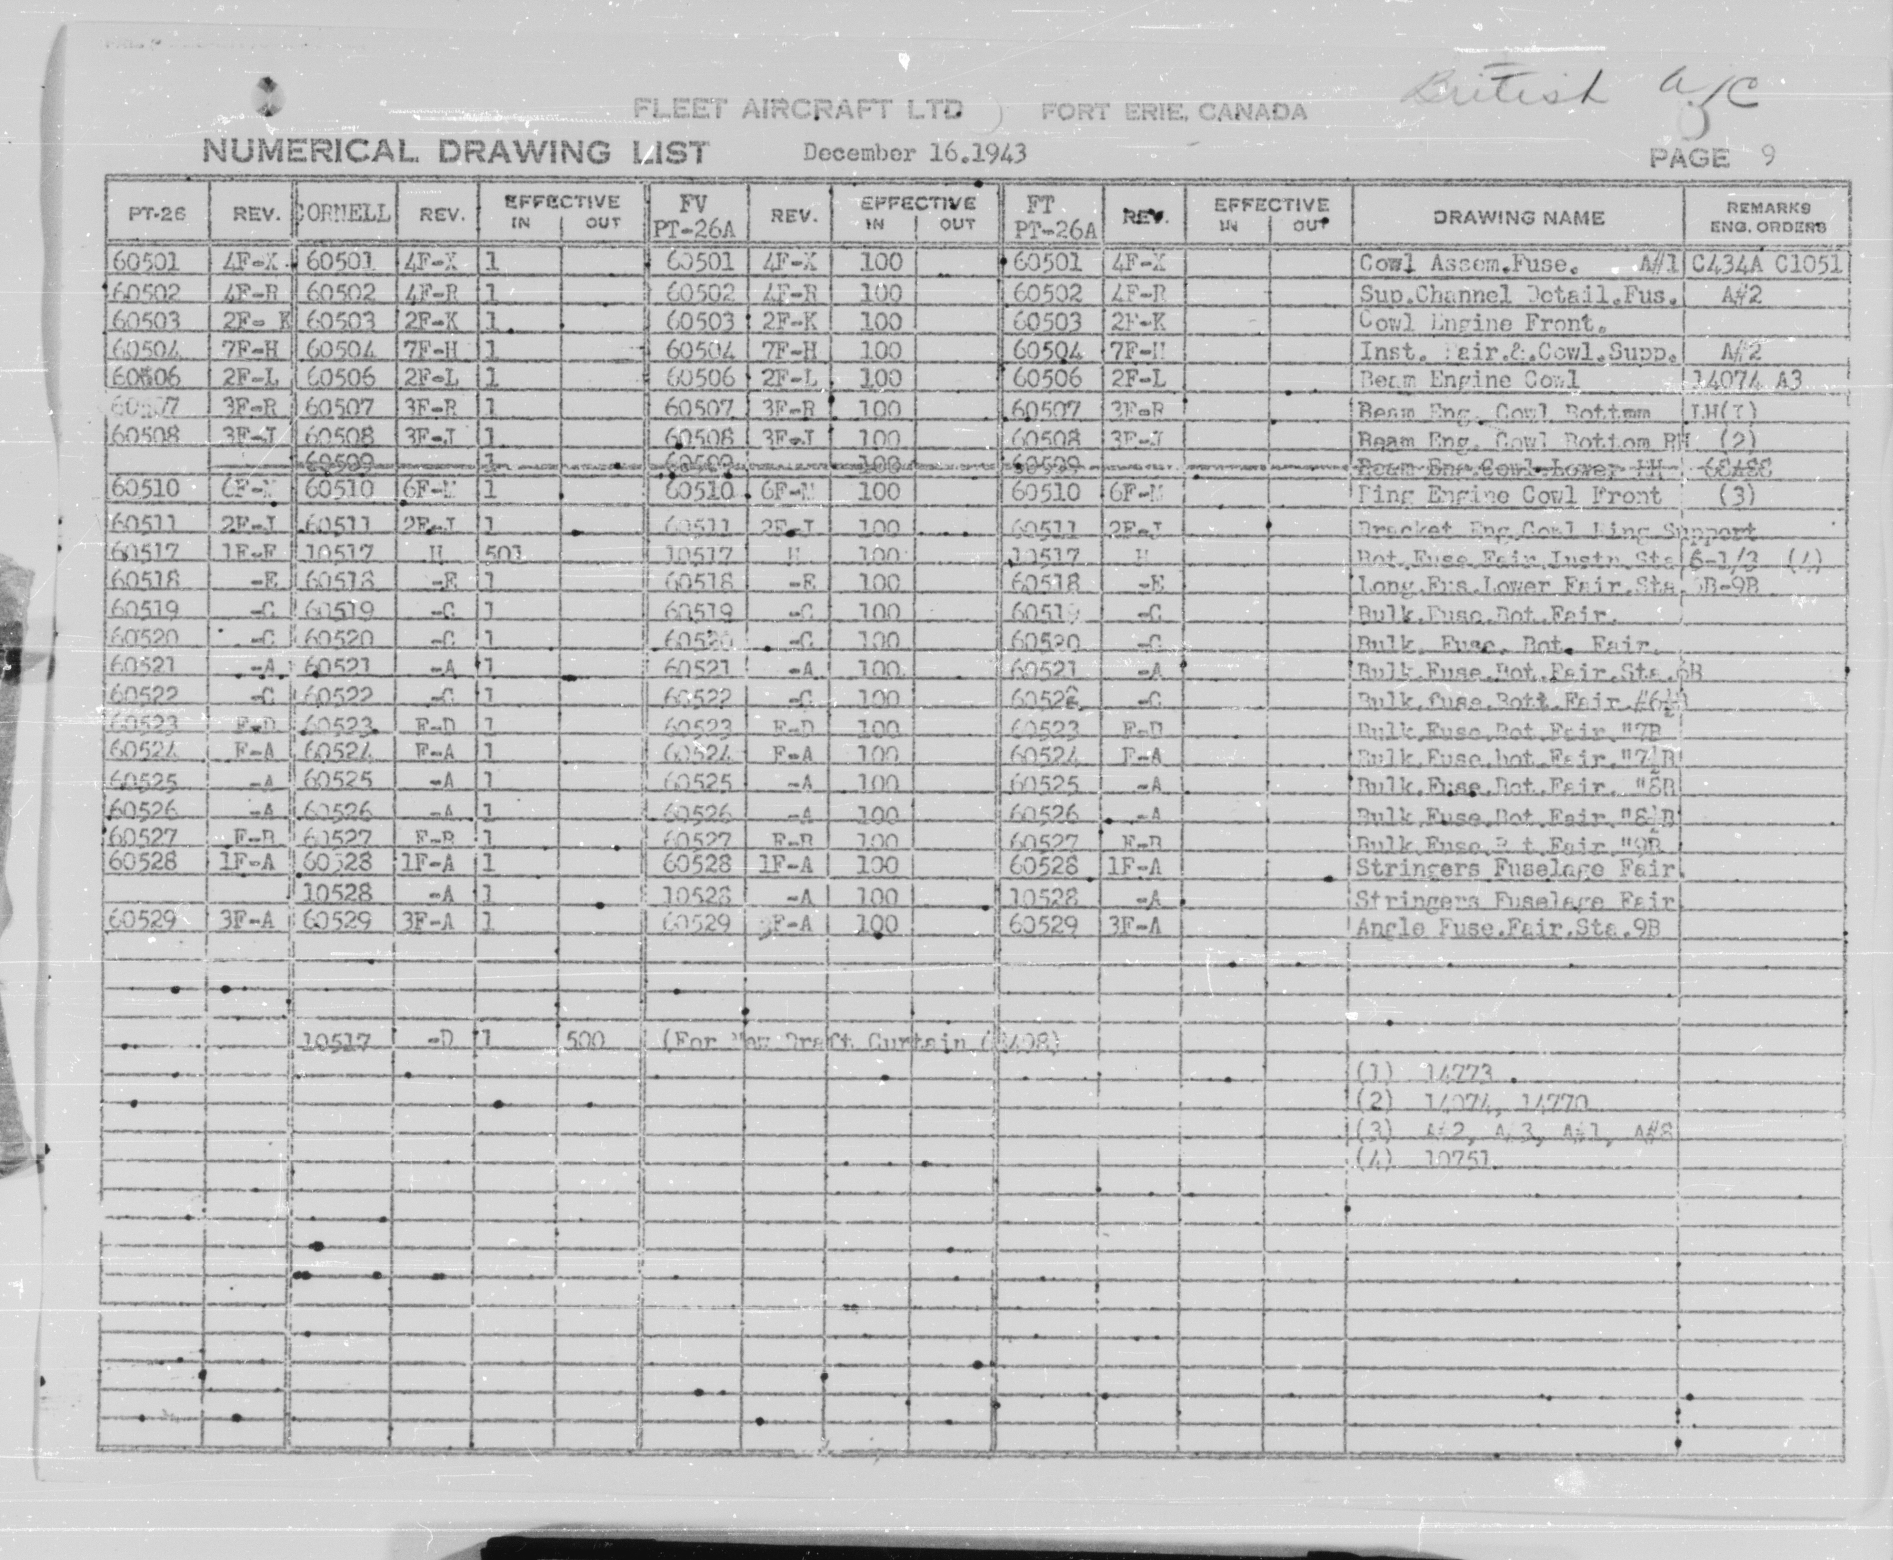 British A/C
FLEET AIRCRAFT LTD FORT ERIE, CANADA
NUMERICAL DRAWING LIST December 16.1943 PAGE 9
PT-26 REV. CORNELL REV. EFFECTIVE IN OUT FV PT-26A REV. EFFECTIVE IN OUT FT PT-26A REV. EFFECTIVE IN OUT DRAWING NAME REMARKS ENG. ORDERS
60501 4F-X 60501 4F-X 1 60501 4F-X 100 60501 4F-X Cowl Assem.Fuse. A#1 C434A C1051
60502 4F-R 60502 4F-R 1 60502 4F-R 100 60502 4F-R Sup.Channel Detail.Fus. A#2
60503 2F-K 60503 2F-K 1 60503 2F-K 100 60503 2F-K Cowl Engine Front.
60504 7F-H 60504 7F-H 1 60504 7F-H 100 60504 7F-H Inst. Fair.&.Cowl.Supp. A#2
60506 2F-L 60506 2F-L 1 60506 2F-L 100 60506 2F-L Beam Engine Cowl 14074 A3
60507 3F-R 60507 3F-R 1 60507 3F-R 100 60507 3F-R Beam Eng. Cowl Bottom LH(1)
60508 3F-J 60508 3F-J 1 60508 3F-J 100 60508 3F-J Beam Eng. Cowl Bottom RH (2)
60509 1 60509 100 60509 Beam Eng.Cowl.Lower LH
60510 6F-M 60510 6F-M 1 60510 6F-M 100 60510 6F-M Ring Engine Cowl Front (3)
60511 2F-J 60511 2F-J 1 60511 2F-J 100 60511 2F-J Bracket Eng.Cowl Ring Support
60517 1F-F 10517 H 501 10517 H 100 10517 H Bot.Fuse.Fair.Instn.Sta 6-1/3 (4)
60518 -E 60518 -E 1 60518 -E 100 60518 -E Long.Fus.Lower Fair.Sta. B-9B
60519 -C 60519 -C 1 60519 -C 100 60519 -C Bulk.Fuse.Bot.Fair.
60520 -C 60520 -C 1 60520 -C 100 60520 -C Bulk. Fuse. Bot. Fair.
60521 -A 60521 -A 1 60521 -A 100 60521 -A Bulk.Fuse.Bot.Fair.Sta.6B
60522 -C 60522 -C 1 60522 -C 100 60522 -C Bulk.fuse.Bott.Fair.#6½B
60523 F-D 60523 F-D 1 60523 F-D 100 60523 F-D Bulk.Fuse.Bot.Fair."7B
60524 F-A 60524 F-A 1 60524 F-A 100 60524 F-A Bulk.Fuse.bot.Fair."7½B
60525 -A 60525 -A 1 60525 -A 100 60525 -A Bulk.Fuse.Bot.Fair. "8B
60526 -A 60526 -A 1 60526 -A 100 60526 -A Bulk.Fuse.Bot.Fair."8½B
60527 F-B 60527 F-B 1 60527 F-B 100 60527 F-B Bulk.Fuse.B t.Fair."9B
60528 1F-A 60528 1F-A 1 60528 1F-A 100 60528 1F-A Stringers Fuselage Fair.
10528 -A 1 10528 -A 100 10528 -A Stringers Fuselage Fair
60529 3F-A 60529 3F-A 1 60529 3F-A 100 60529 3F-A Angle Fuse.Fair.Sta.9B
10517 -D 1 500 (For New Draft Curtain
(1) 14773
(2) 14074, 14770
(3) A#2, A#3, A#1, A#8
(4) 10751